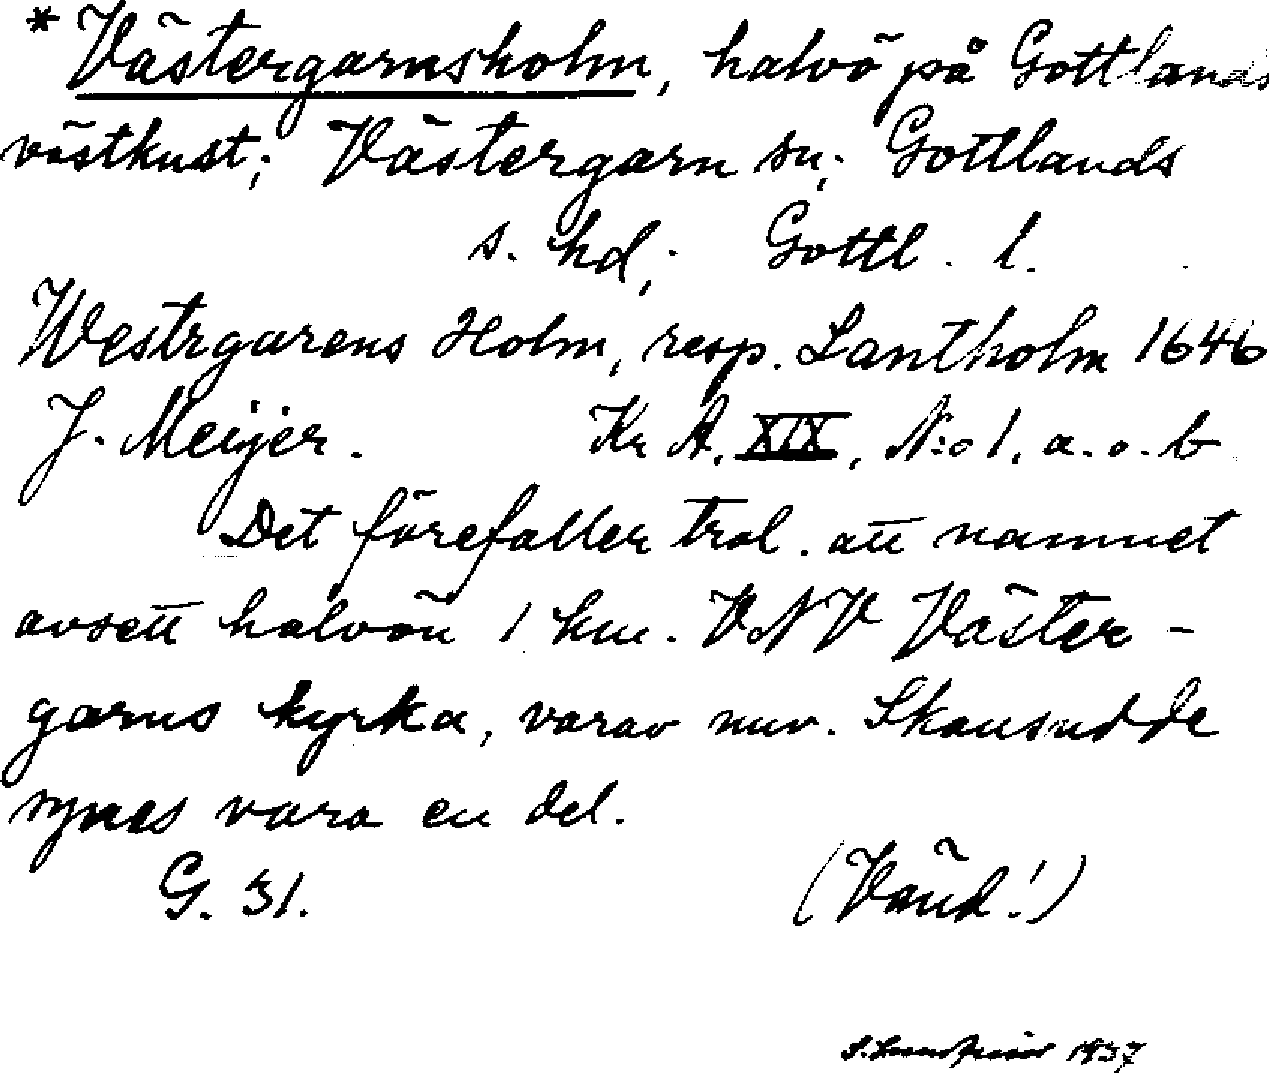 * Västergarnsholm, halvö på Gottlands
västkust; Västergarn sn; Gottlands
s. hd; Gottl. l.
Westrgarens Holm, resp. Lantholm 1646
J. Meijer. Kr A. XIX, N:o 1. a. o. b
Det förefaller trol. att namnet
avsett halvön 1 km. VNV Väster-
garns kyrka, varav nuv. Skansudde
synes vara en del.
G. 31. (Vänd!)
1937